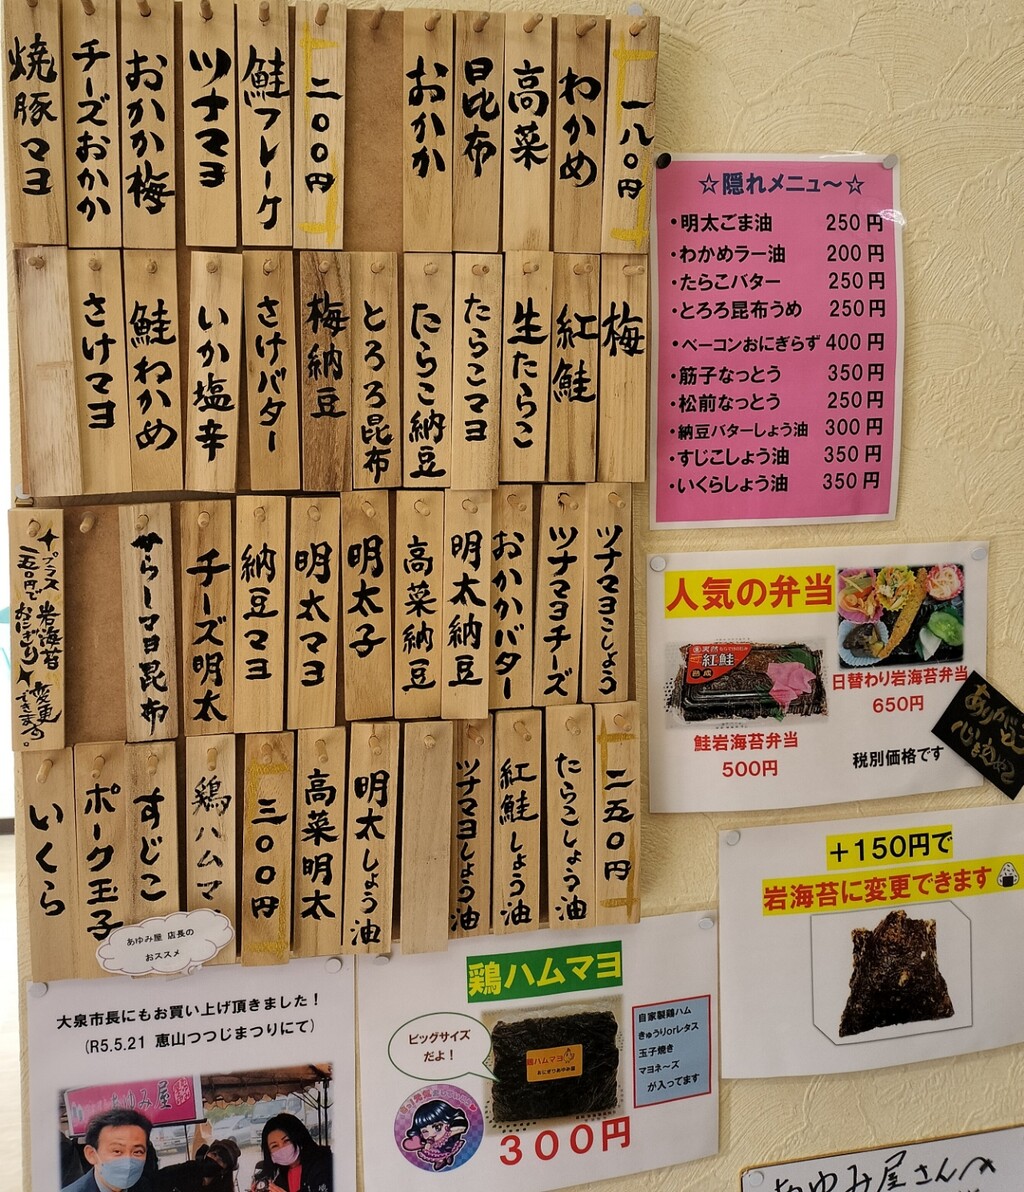 一八〇円
わかめ
高菜
昆布
おかか
二〇〇円
鮭フレーク
ツナマヨ
おかか梅
チーズおかか
焼豚マヨ
梅
紅鮭
生たらこ
たらこマヨ
たらこ納豆
とろろ昆布
梅納豆
さけバター
いか塩辛
鮭わかめ
さけマヨ
ツナマヨこしょう
ツナマヨチーズ
おかかバター
明太納豆
高菜納豆
明太子
明太マヨ
納豆マヨ
チーズ明太
からしマヨ昆布
＋プラス
一五〇円で
岩海苔
おにぎりに
変更
できます。
二五〇円
たらこしょう油
紅鮭しょう油
ツナマヨしょう油
明太しょう油
高菜明太
三〇〇円
鶏ハムマ
すじこ
ポーク玉子
いくら
☆隠れメニュ〜☆
・明太ごま油 250円
・わかめラー油 200円
・たらこバター 250円
・とろろ昆布うめ 250円
・ベーコンおにぎらず 400円
・筋子なっとう 350円
・松前なっとう 250円
・納豆バターしょう油 300円
・すじこしょう油 350円
・いくらしょう油 350円
人気の弁当
紅鮭
熟成
日替わり岩海苔弁当
650円
鮭岩海苔弁当
500円
税別価格です
ありがとう
＋150円で
岩海苔に変更できます
あゆみ屋 店長の
おススメ
大泉市長にもお買い上げ頂きました！
(R5.5.21 恵山つつじまつりにて)
あゆみ屋
鶏ハムマヨ
ビッグサイズ
だよ！
鶏ハムマヨ
自家製鶏ハム
きゅうりorレタス
玉子焼き
マヨネ～ズ
が入ってます
300円
あゆみ屋さんへ